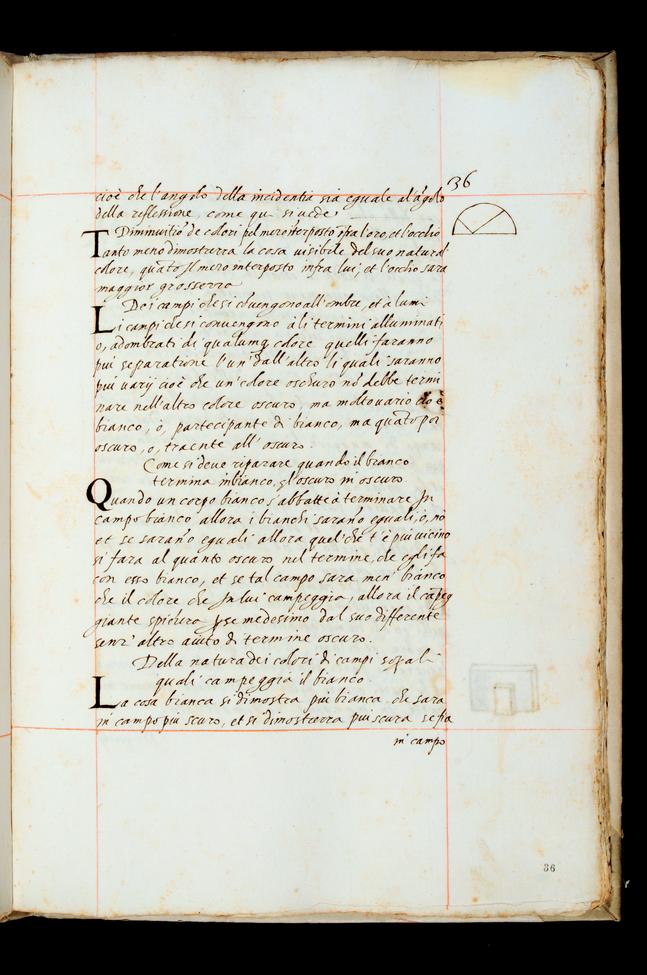 36
cioè che l'angolo della incidentia sia eguale al'ãgolo
della reflessione, come qui si vede.
Diminuitiõ de colori pel mezo interposto ĩfra loro, et l'occhio
Tanto meno dimosterra la cosa visibile del suo natural
colore, quãto Il mezo interposto infra lui, et l'occhio sara
maggior grossezza
De i campi che si convengono all'ombre, et à lumi
Li canpi che si convengono à li termini alluminati
o, adombrati di qualunq colore quelli faranno
piu separatione l'un' dall'altro li quali saranno
piu varij cioè che un' colore oscuro nõ debbe termi
nare nell'altro colore oscuro, ma molto vario cio è
bianco, ò, partecipante di bianco, ma quãto poi
oscuro, o, traente all' oscuro.
Come si deve riparare quando il bianco
termina in bianco, ò l'oscuro in oscuro.
Quando un corpo bianco s'abbatte à terminare In
campo bianco allora i bianchi sarañо eguali, ò, nò
et se sarañо eguali allora quel' che t'è piu vicino
si fara al quanto oscuro nel termine, che egli fa
con esso bianco, et se tal campo sara men' bianco
che il colore che In lui campeggia, allora il cãpeg
giante spichera p se medesimo dal suo differente
senz' altro aiuto di termine oscuro.
Della natura de i colori di campi sopra li
quali campeggia il bianco.
La cosa bianca si dimostra piu bianca che sara
in campo piu scuro, et si dimosterra piu scura se fia
in campo
86